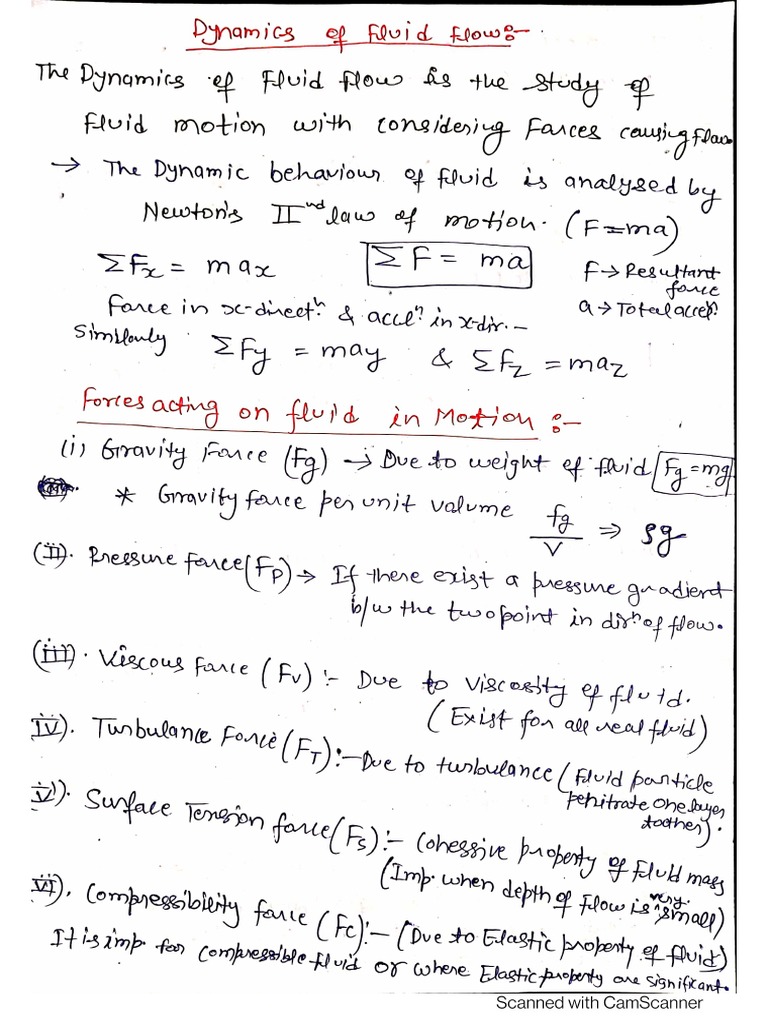 Dynamics of Fluid Flow:-
The Dynamics of Fluid flow is the study of
fluid motion with considering Forces causing flow
→ The Dynamic behaviour of fluid is analysed by
Newton's IInd law of motion. (F=ma)
ΣFx = max ΣF = ma F→Resultant force
Force in x-directn. & accln. in x-dir.- a→Total accen.
Similarly ΣFy = may & ΣFz = maz
Forces acting on fluid in Motion :-
(i) Gravity Force (Fg) → Due to weight of fluid Fg=mg
* Gravity force per unit volume fg/V ⇒ ρg
(II). Pressure force (Fp) → If there exist a pressure gradient
b/w the two point in dirn of flow.
(iii). Viscous Force (Fv) :- Due to viscosity of fluid.
(Exist for all real fluid)
IV). Turbulance Force (FT):- Due to turbulance (Fluid particle
penitrate one layer
to other).
V). Surface Tension force (Fs):- Cohessive property of Fluid mass
(Imp. when depth of Flow is very small)
VI). Compressibility force (Fc):- (Due to Elastic property of fluid)
It is imp. for compressible fluid or where Elastic property are significant.
Scanned with CamScanner